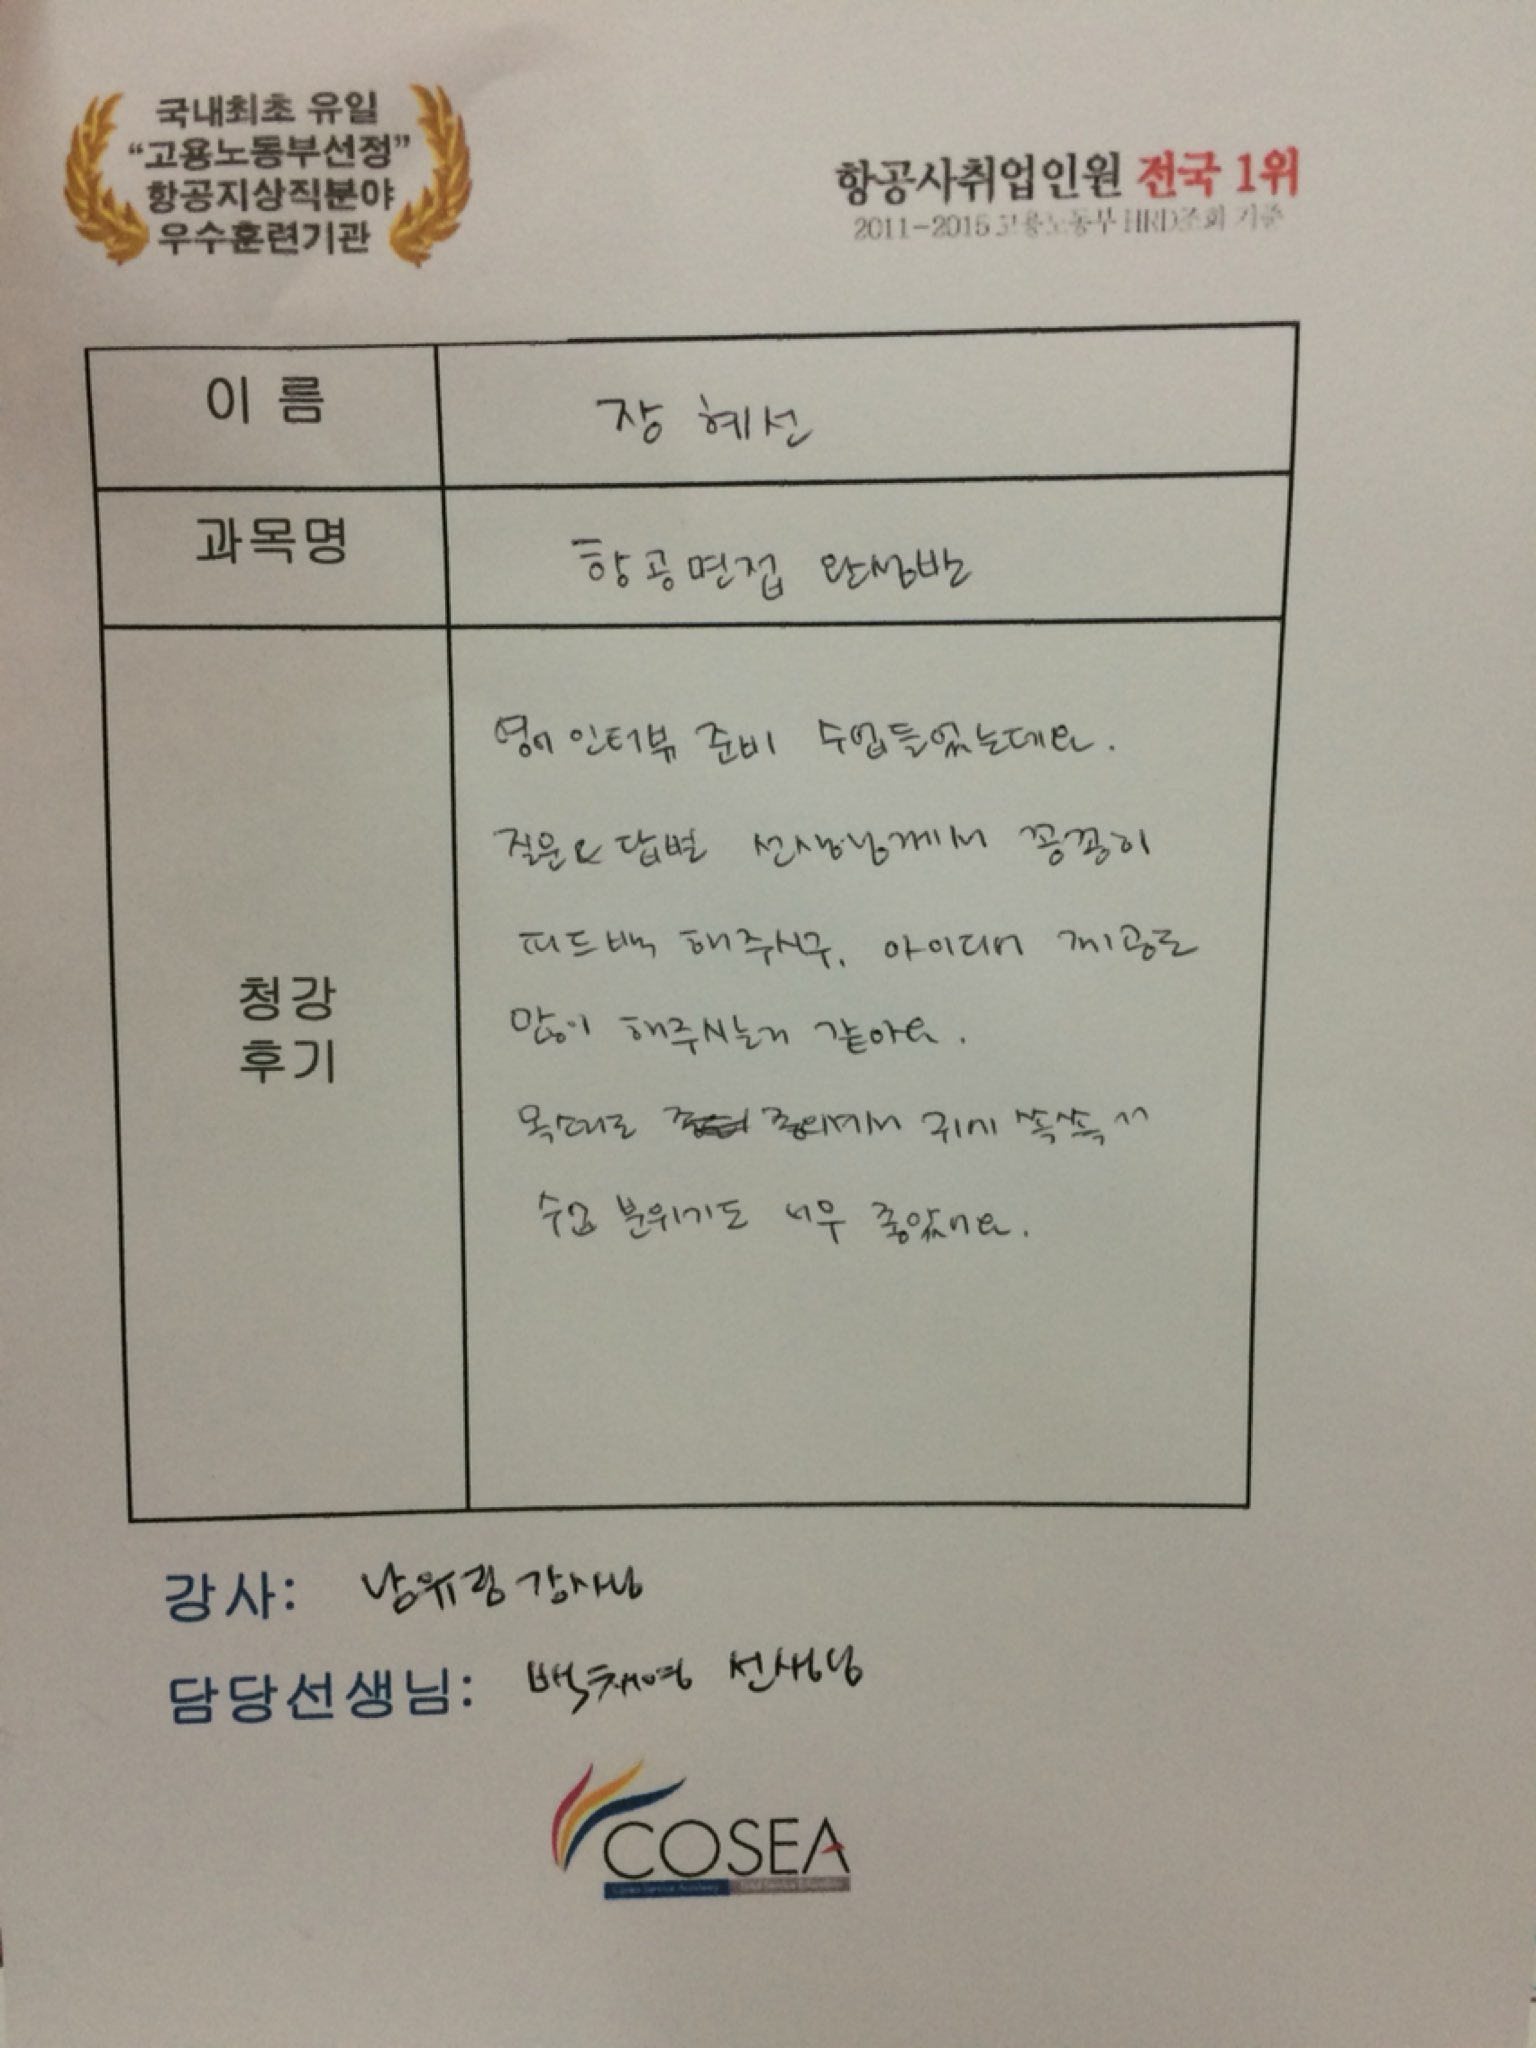 국내최초 유일
“고용노동부선정”
항공지상직분야
우수훈련기관
항공사취업인원 전국 1위
2011-2015 고용노동부 HRD조회 기준
이 름
장 혜선
과목명
항공면접 완성반
청강
후기
영어 인터뷰 준비 수업들었는데요.
질문& 답변 선생님께서 꼼꼼히
피드백 해주시구, 아이디어 제공도
많이 해주시는거 같아요.
목소리도 좋으셔서 귀에 쏙쏙 ^^
수업 분위기도 너무 좋았어요.
강사: 남유림 강사님
담당선생님: 백채영 선생님
COSEA